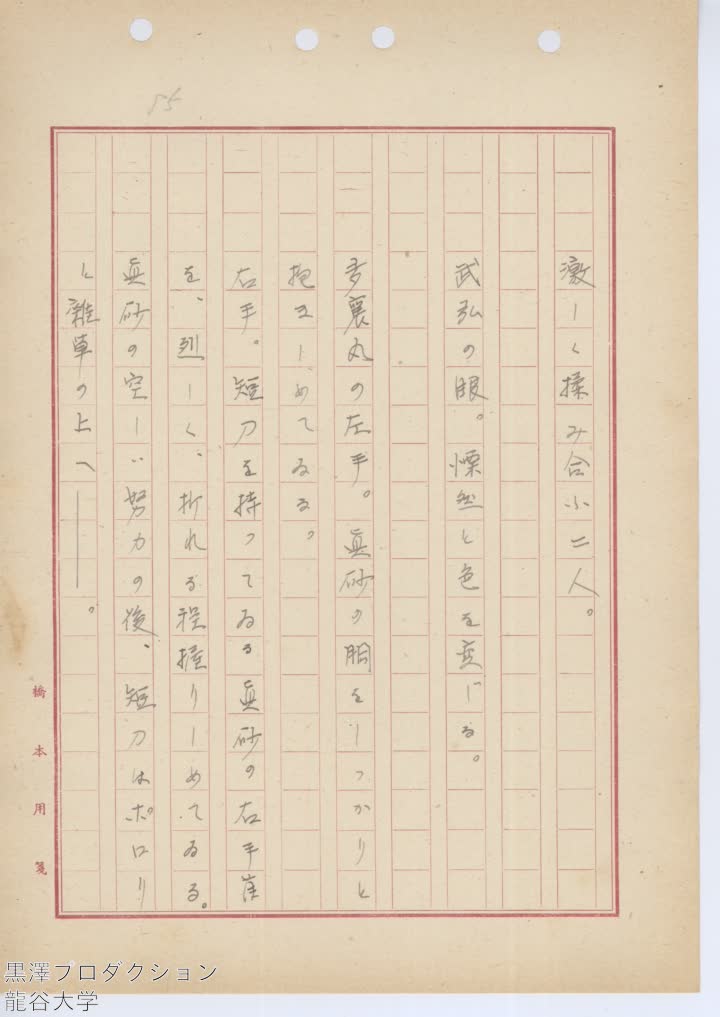 55
激しく揉み合ふ二人。
武弘の眼。慄然と色を変じる。
多襄丸の左手。眞砂の胴をしつかりと
抱きしめてゐる。
右手。短刀を持つてゐる眞砂の右手首
を、烈しく、折れる程握りしめてゐる。
眞砂の空しい努力の後、短刀はポロリ
と雜草の上へ――。
橋本用箋
黒澤プロダクション
龍谷大学